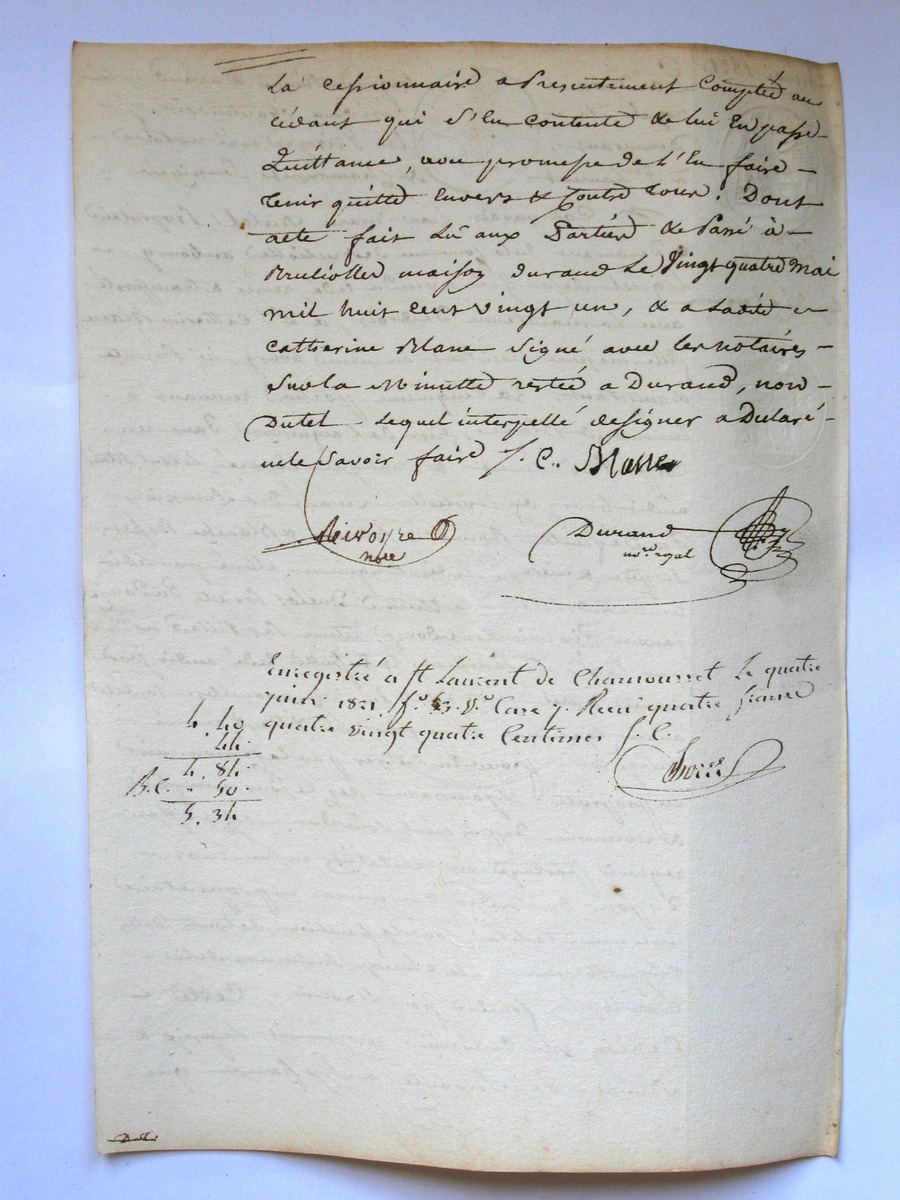 La cessionnaire a Presentement Comptée au
cédant qui s'en contente de lui En passe
Quittance, avec promesse de l'En faire
tenir quitte Envers & Contre tous. Dont
acte fait Lû aux Parties & Passé à
Brullioles maison durand Le Vingt quatre Mai
mil huit cent vingt un, & a Ladite
Catherine Blanc Signé avec les notaires
Sur la Minutte restée a Durand, non
Dutel Lequel interpellé de signer a Déclaré
ne le Savoir faire /. C. Blanc
Rivoyre
nore
Durand
nore. royal
Enregistré a St Laurent de Chamousset Le quatre
juin 1821 fo. 53. Vo. Case 7. Reçu quatre francs
quatre vingt quatre Centimes /. C.
4. 40
44.
4. 84.
B.C. - 50.
5. 34